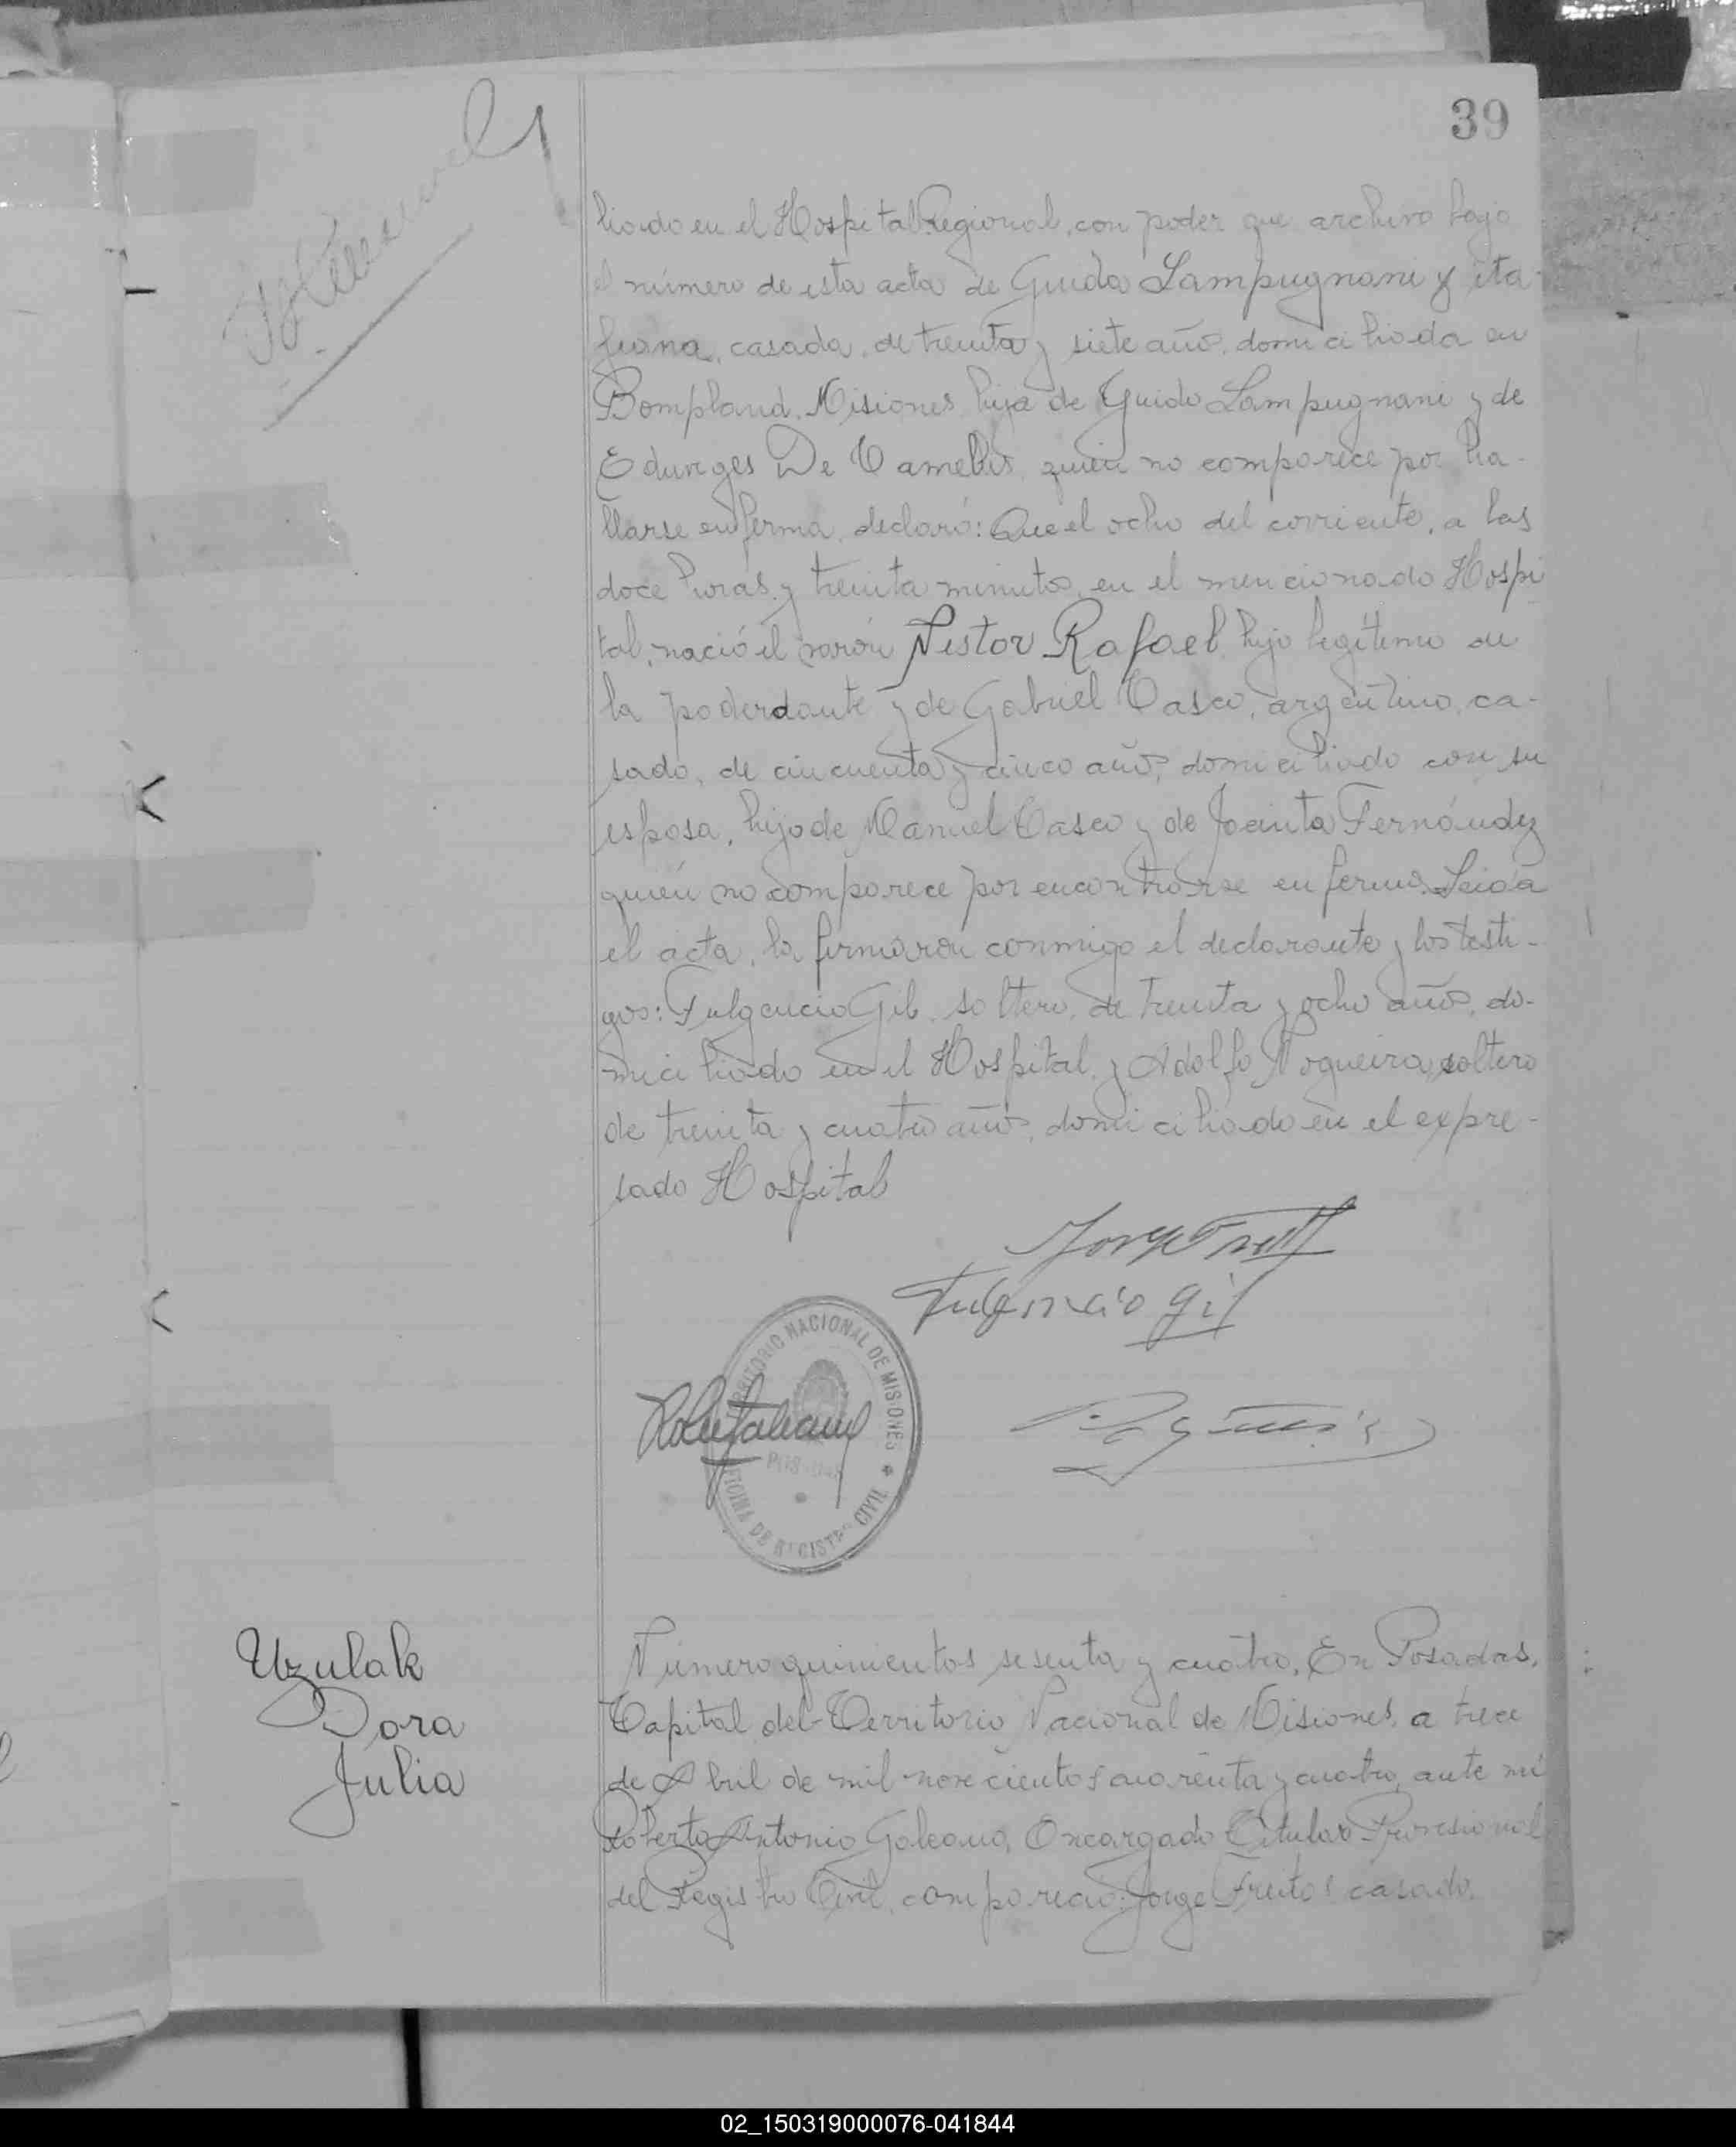 39
liado en el Hospital Regional, con poder que archivo bajo
el número de esta acta de Guida Lampugnani y ita-
liana, casada, de treinta y siete años, domiciliada en
Bompland, Misiones, hija de Guido Lampugnani y de
Eduvges De Camellis, quien no comparece por ha-
llarse enferma, declaró: Que el ocho del corriente, a las
doce horas y treinta minutos, en el mencionado Hospi
tal, nació el varón Nestor Rafael, hijo legítimo de
la poderdante y de Gabriel Casco, argentino, ca-
sado, de cincuenta y cinco años, domiciliado con su
esposa, hijo de Manuel Casco y de Jacinta Fernández
quién no comparece por encontrarse enfermo. Leida
el acta, la firmaron conmigo el declarante y los testi-
gos: Fulgencio Gil, soltero, de treinta y ocho años, do-
miciliado en el Hospital y Adolfo Nogueira, soltero
de treinta y cuatro años, domiciliado en el expre-
sado Hospital
Fulgencio Gil
TERRITORIO NACIONAL DE MISIONES
POSADAS
OFICINA DE REGISTRO CIVIL
Uzulak
Dora
Julia
Número quinientos sesenta y cuatro, En Posadas,
Capital del Territorio Nacional de Misiones, a trece
de Abril de mil novecientos cuarenta y cuatro, ante mí
Roberto Antonio Galeano, Encargado Titular Provisional
del Registro Civil, compareció: Jorge Freitas casado,
02_150319000076-041844